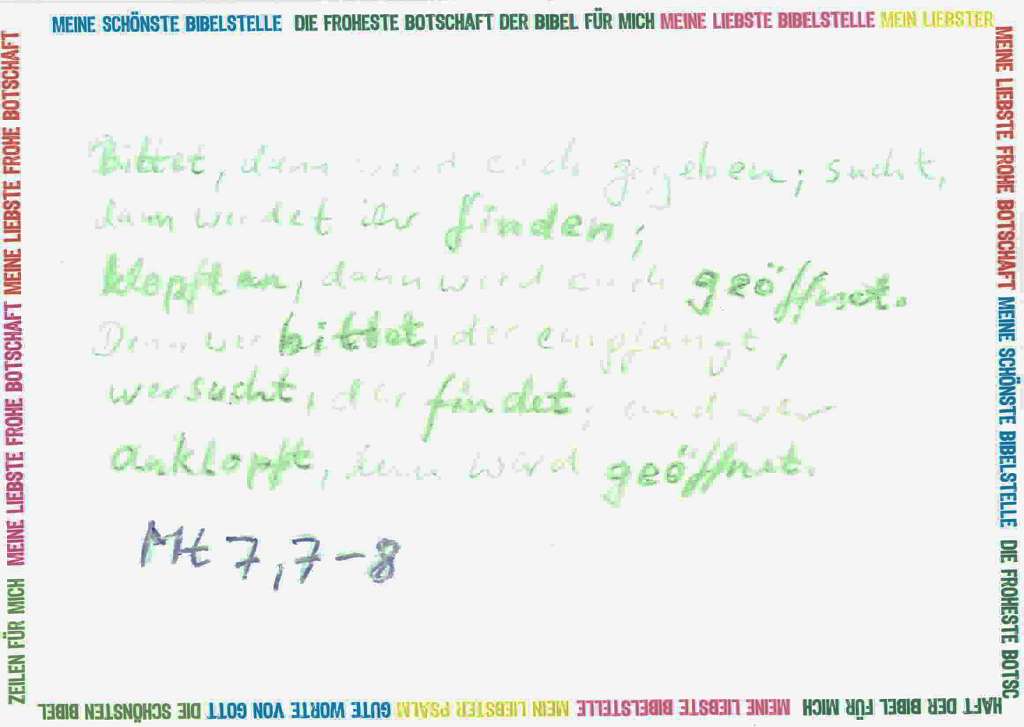 MEINE SCHÖNSTE BIBELSTELLE DIE FROHESTE BOTSCHAFT DER BIBEL FÜR MICH MEINE LIEBSTE BIBELSTELLE MEIN LIEBSTER
MEINE LIEBSTE FROHE BOTSCHAFT MEINE SCHÖNSTE BIBELSTELLE DIE FROHESTE BOTSC
HAFT DER BIBEL FÜR MICH MEINE LIEBSTE BIBELSTELLE MEIN LIEBSTER PSALM GUTE WORTE VON GOTT DIE SCHÖNSTEN BIBEL
ZEILEN FÜR MICH MEINE LIEBSTE FROHE BOTSCHAFT MEINE LIEBSTE FROHE BOTSCHAFT
Bittet, dann wird euch gegeben; sucht,
dann werdet ihr finden;
klopft an, dann wird euch geöffnet.
Denn wer bittet, der empfängt,
wer sucht, der findet; und wer
anklopft, dem wird geöffnet.
Mt 7,7-8